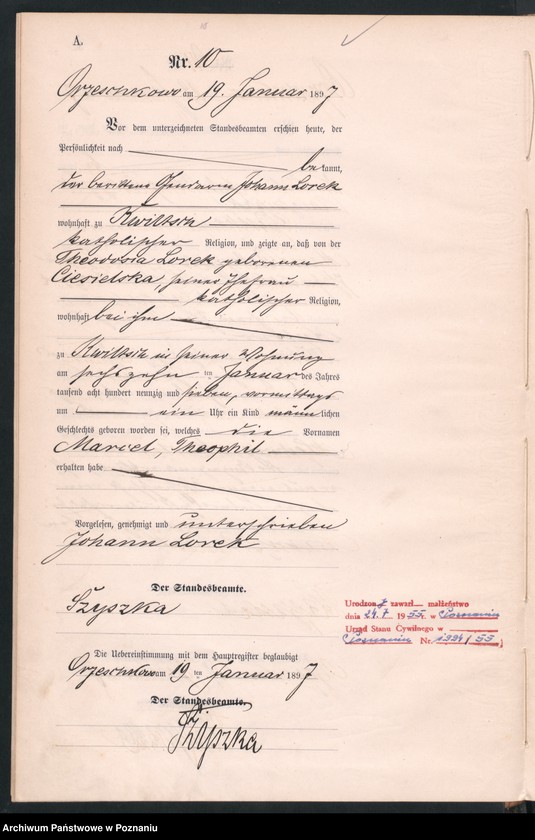 A.
Nr. 10
Orzeschkowo am 19. Januar 1897
Vor dem unterzeichneten Standesbeamten erschien heute, der
Persönlichkeit nach bekannt,
der berittene Gendarm Johann Lorek
wohnhaft zu Kwiltsch
katholischer Religion, und zeigte an, daß von der
Theodosia Lorek geborenen
Ciesielska, seiner Ehefrau
katholischer Religion,
wohnhaft bei ihm
zu Kwiltsch in seiner Wohnung
am sechszehn ten Januar des Jahres
tausend acht hundert neunzig und sieben, vormittags
um ein Uhr ein Kind männlichen
Geschlechts geboren worden sei, welches die Vornamen
Marcel, Theophil
erhalten habe
Vorgelesen, genehmigt und unterschrieben
Johann Lorek
Der Standesbeamte.
Szyszka
Urodzon y zawarł małżeństwo
dnia 24.7 1955 w Poznaniu
Urząd Stanu Cywilnego w
Poznaniu Nr. 1224/55
Die Uebereinstimmung mit dem Hauptregister beglaubigt
Orzeschkowo am 19 ten Januar 1897
Der Standesbeamte.
Szyszka
Archiwum Państwowe w Poznaniu